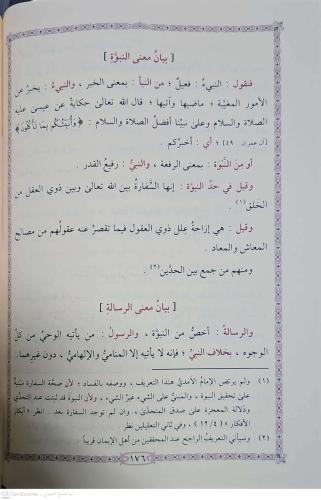 [ بيانُ معنى النبوَّة ]
فنقول : النبيءُ : فعيلٌ ؛ من النبأ : بمعنى الخبر ، والنبيءُ : يخبرُ عن
الأمور المغيَّبة ؛ ماضيها وآتيها ؛ قال الله تعالى حكايةً عن عيسى عليه
الصلاة والسلام وعلى نبيِّنا أفضلُ الصلاة والسلام : ﴿وَأُنَبِّئُكُم بِمَا تَأْكُلُونَ﴾
[آل عمران : ٤٩] ؛ أي : أخبرُكم .
أو مِنَ النَّبْوَة : بمعنى الرفعة ، والنبيُّ : رفيعُ القدر .
وقيل في حدِّ النبوَّة : إنها السَّفارةُ بين الله تعالى وبين ذوي العقل من
الخلق(١) .
وقيل : هي إزاحةُ علل ذوي العقول فيما تقصرُ عنه عقولُهم من مصالح
المعاش والمعاد .
ومنهم من جمع بين الحدَّين(٢) .
[ بيانُ معنى الرسالة ]
والرسالةُ : أخصُّ من النبوَّة ، والرسولُ : من يأتيه الوحيُ من كلِّ
الوجوه ، بخلاف النبيِّ ؛ فإنه لا يأتيه إلا المناميُّ والإلهاميُّ ، دون غيرهما .
(١) ولم يرتضِ الإمامُ الآمديُّ هذا التعريف ، ووصفه بالفساد ؛ لأن صحَّة السفارة مبنيَّةٌ
على تحقيق النبوة ، والمبنيُّ على الشيء غيرُ الشيء ، ولأن النبوة قد تثبت عند التحدِّي
ودلالة المعجزة على صدق المتحدِّي ، وإن لم توجد السفارة بعد . انظر « أبكار
الأفكار » ( ١٢/٤ ) ، وفي ثاني التعليلين نظر .
(٢) وسيأتي التعريفُ الراجح عند المحققين من أهل الإيمان قريباً .
١٧٦
CamScanner